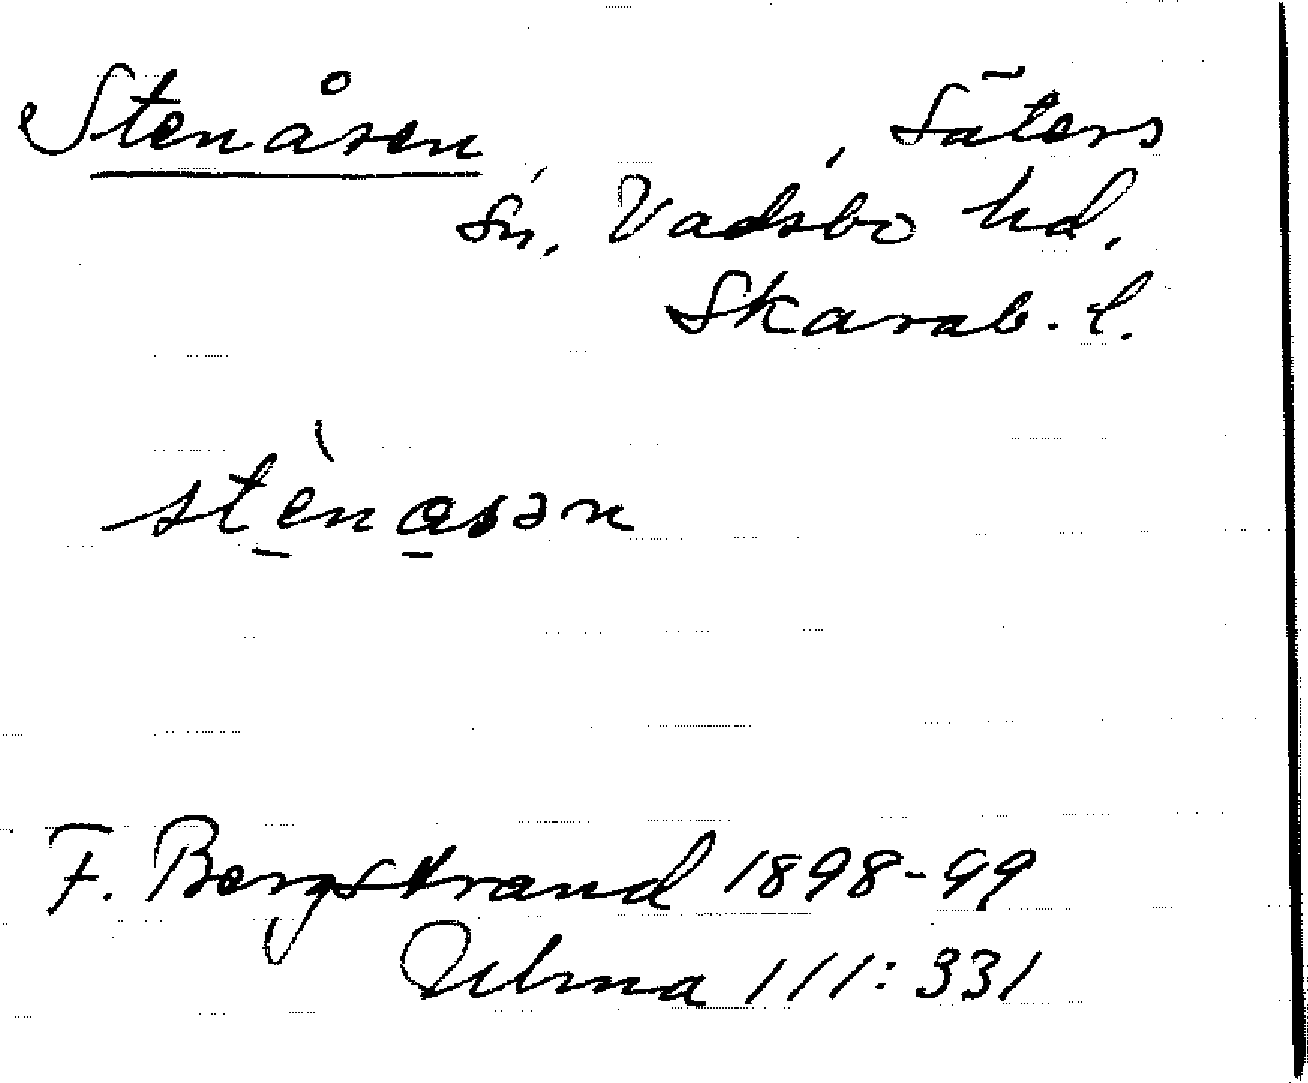 Stenåsen, Säters
sn, Vadsbo hd.
Skarab. l.
stènasən
F. Bergstrand 1898-99
Ulma 111:331